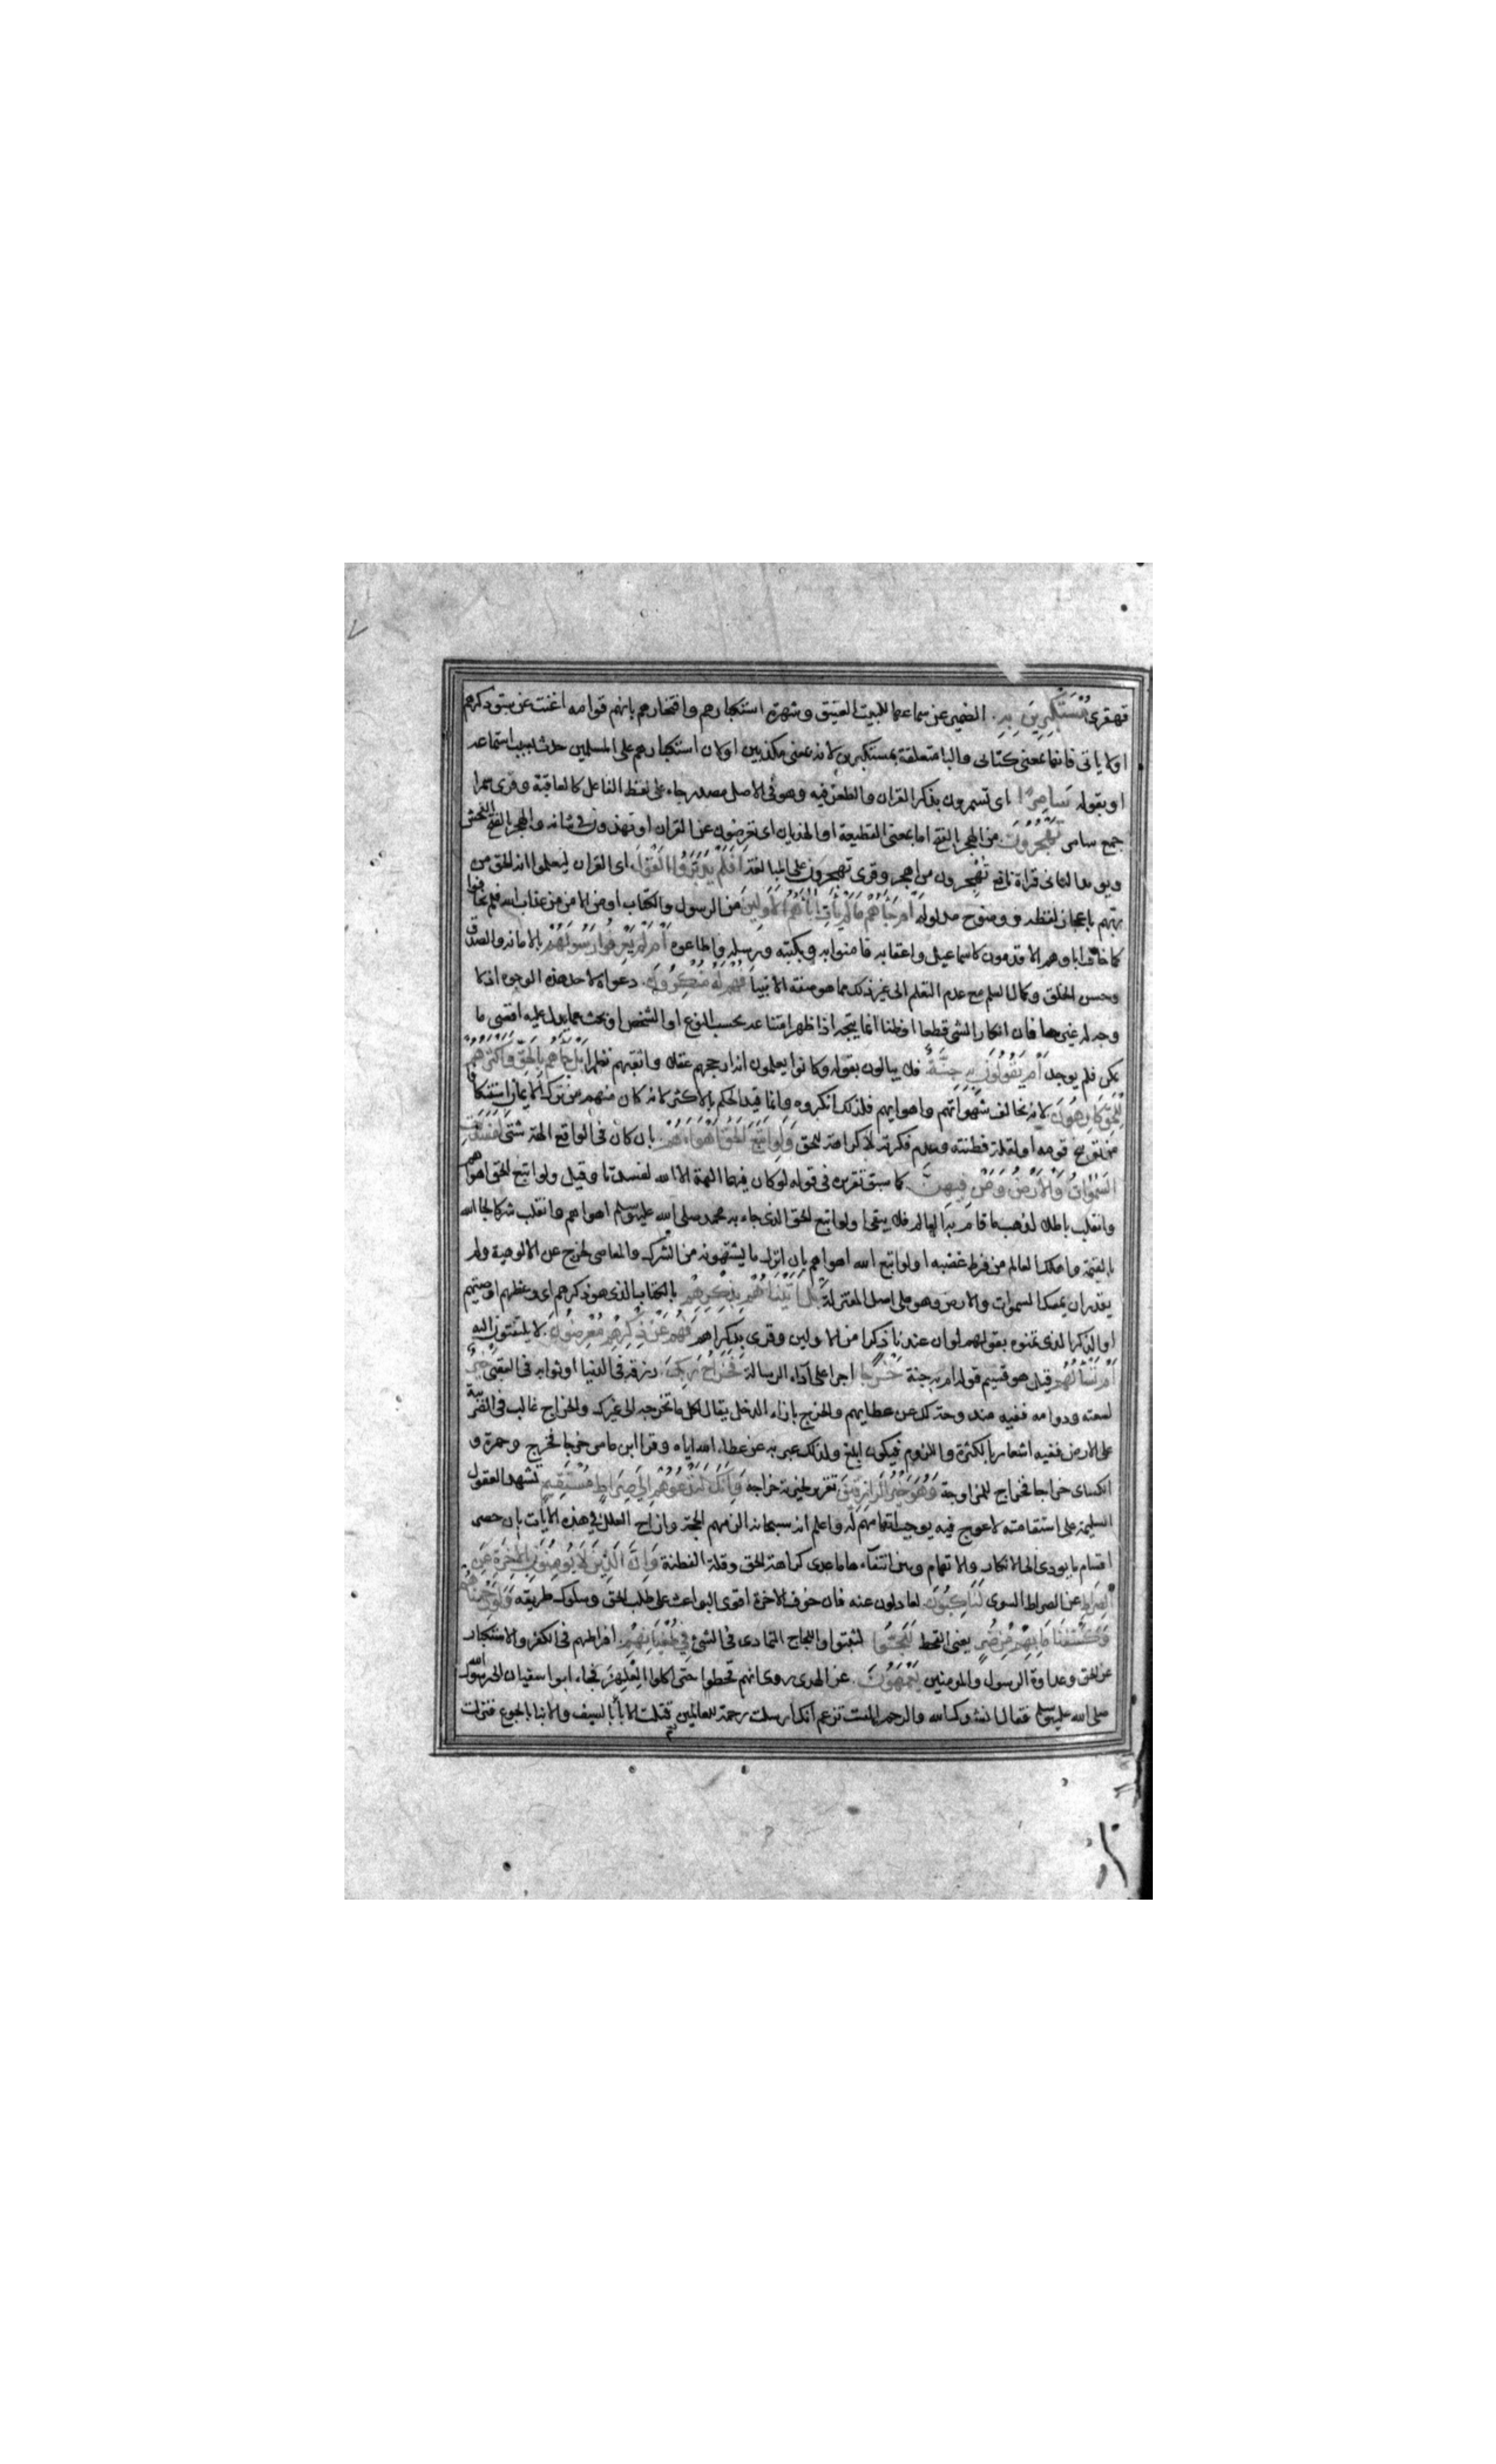 قهقرى مُسْتَكْبِرِينَ بِهِ. الضمير عن سماعها للبيت العتيق وشهرة استكبارهم وافتخارهم بانهم قوامه اغنت عن سبق ذكرهم
اولاياتى فانها بمعنى كتابى والبا متعلقة بمستكبرين لانه بمعنى مكذبين اولان استكبارهم على المسلمين حدث بسبب استماعه
اوبقوله سَامِرًا اى تسمرون بذكر القران والطعن فيه وهو فى الاصل مصدر جاء على لفظ الفاعل كالعاقبة وقرى سمرا
جمع سامر تَهْجُرُونَ من الهجر بالفتح اما بمعنى القطيعة او الهذيان اى تعرضون عن القران او تهذون فى شانه والهجر بالضم الفحش
ويويد الثانى قراة نافع تُهْجِرون من اهجر وقرى تهجرون على المبالغة اَفَلَمْ يَدَّبَّرُوا الْقَوْلَ. اى القران ليعلموا انه الحق من
ربهم باعجاز لفظه ووضوح مدلوله اَمْ جَاءَهُمْ مَا لَمْ يَأْتِ اٰبَاءَهُمُ الْاَوَّلِينَ من الرسول والكتاب اومن الامن من عذاب الله فلم يخافوا
كما خاف اباوهم الاقدمون كاسماعيل واعقابه فامنوا به وبكتبه ورسله واطاعوه اَمْ لَمْ يَعْرِفُوا رَسُولَهُمْ بالامانة والصدق
وحسن الخلق وكمال العلم مع عدم التعلم الى غير ذلك مما هو صفة الانبيا فَهُمْ لَهُ مُنْكِرُونَ. دعواه لاحد هذه الوجوه اذ لا
وجه له غيرها فان انكار الشى قطعا اوظنا انما يتجه اذا ظهر امتناعه بحسب النوع او الشخص او بحث عما يدل عليه اقصى ما
يمكن فلم يوجد اَمْ يَقُولُونَ بِهِ جِنَّةٌ. فلا يبالون بقوله وكانوا يعلمون انه ارجحهم عقلا واثقبهم نظرا بَلْ جَاءَهُمْ بِالْحَقِّ وَاَكْثَرُهُمْ
لِلْحَقِّ كَارِهُونَ لانه يخالف شهواتهم واهوايهم فلذلك انكروه وانما قيد الحكم بالاكثر لانه كان منهم من ترك الايمان استنكافا
من توبيخ قومه اولقلة فطنته وعدم فكرته لا لكراهة للحق وَلَوِ اتَّبَعَ الْحَقُّ اَهْوَاءَهُمْ. بان كان فى الواقع الهة شتى لَفَسَدَتِ
السَّمٰوَاتُ وَالْاَرْضُ وَمَنْ فِيهِنَّ كما سبق تقريره فى قوله لوكان فيهما الهة الا الله لفسدتا وقيل ولو اتبع الحق اهواهم
وانقلب باطلا لذهب ما قام به العالم فلا يبقى اولو اتبع الحق الذى جاء به محمد صلى الله عليه وسلم اهواهم وانقلب شركا لجا الله
بالقيمة واهلك العالم من فرط غضبه اولو اتبع الله اهواهم بان انزل ما يشتهونه من الشرك والمعاصى لخرج عن الالوهية ولم
يقدر ان يمسك السموات والارض وهو على اصل المعتزلة بَلْ اَتَيْنَاهُمْ بِذِكْرِهِمْ بالكتاب الذى هو ذكرهم اى وعظهم او صيتهم
او الذكر الذى تمنوه بقولهم لو ان عندنا ذكرا من الاولين وقرى بذكراهم فَهُمْ عَنْ ذِكْرِهِمْ مُعْرِضُونَ. لا يلتفتون اليه
اَمْ تَسْأَلُهُمْ قيل هو قسيم قوله ام به جنة خَرْجًا اجرا على اداء الرسالة فَخَرَاجُ رَبِّكَ. رزقه فى الدنيا او ثوابه فى العقبى خَيْرٌ
لسعته ودوامه ففيه مندوحة لك عن عطايهم والخرج بازاء الدخل يقال لكل ما تخرجه الى غيرك والخراج غالب فى الضريبة
على الارض ففيه اشعار بالكثرة واللزوم فيكون ابلغ ولذلك عبر به عن عطاء الله اياه وقرا ابن عامر خرجا فخرج وحمزة و
الكساى خراجا فخراج للمزاوجة وَهُوَ خَيْرُ الرَّازِقِينَ تقرير لخيرية خراجه وَاِنَّكَ لَتَدْعُوهُمْ اِلَى صِرَاطٍ مُسْتَقِيمٍ تشهد العقول
السليمة على استقامته لا عوج فيه يوجب اتهامهم له واعلم انه سبحانه الزمهم الحجة وازاح العلل فى هذه الايات بان حصر
اقسام ما يودى الى الانكار والاتهام وبين انتفاءها ما عدى كراهة الحق وقلة الفطنة وَاِنَّ الَّذِينَ لَا يُؤْمِنُونَ بِالْاٰخِرَةِ عَنِ
الصِّرَاطِ عن الصراط السوى لَنَاكِبُونَ. لعادلون عنه فان خوف الاخرة اقوى البواعث على طلب الحق وسلوك طريقه وَلَوْ رَحِمْنَاهُمْ
وَكَشَفْنَا مَا بِهِمْ مِنْ ضُرٍّ يعنى القحط لَلَجُّوا لثبتوا واللجاج التمادى فى الشئ فِي طُغْيَانِهِمْ. افراطهم فى الكفر والاستكبار
عن الحق وعداوة الرسول والمومنين يَعْمَهُونَ. عن الهدى روى انهم قحطوا حتى اكلوا العِلْهِزَ فجاء ابو اسفيان الى رسول الله
صلى الله عليه وسلم فقال انشدك الله والرحم الست تزعم انك ارسلت رحمة للعالمين قتلت الابا بالسيف والابنا بالجوع فنزلت